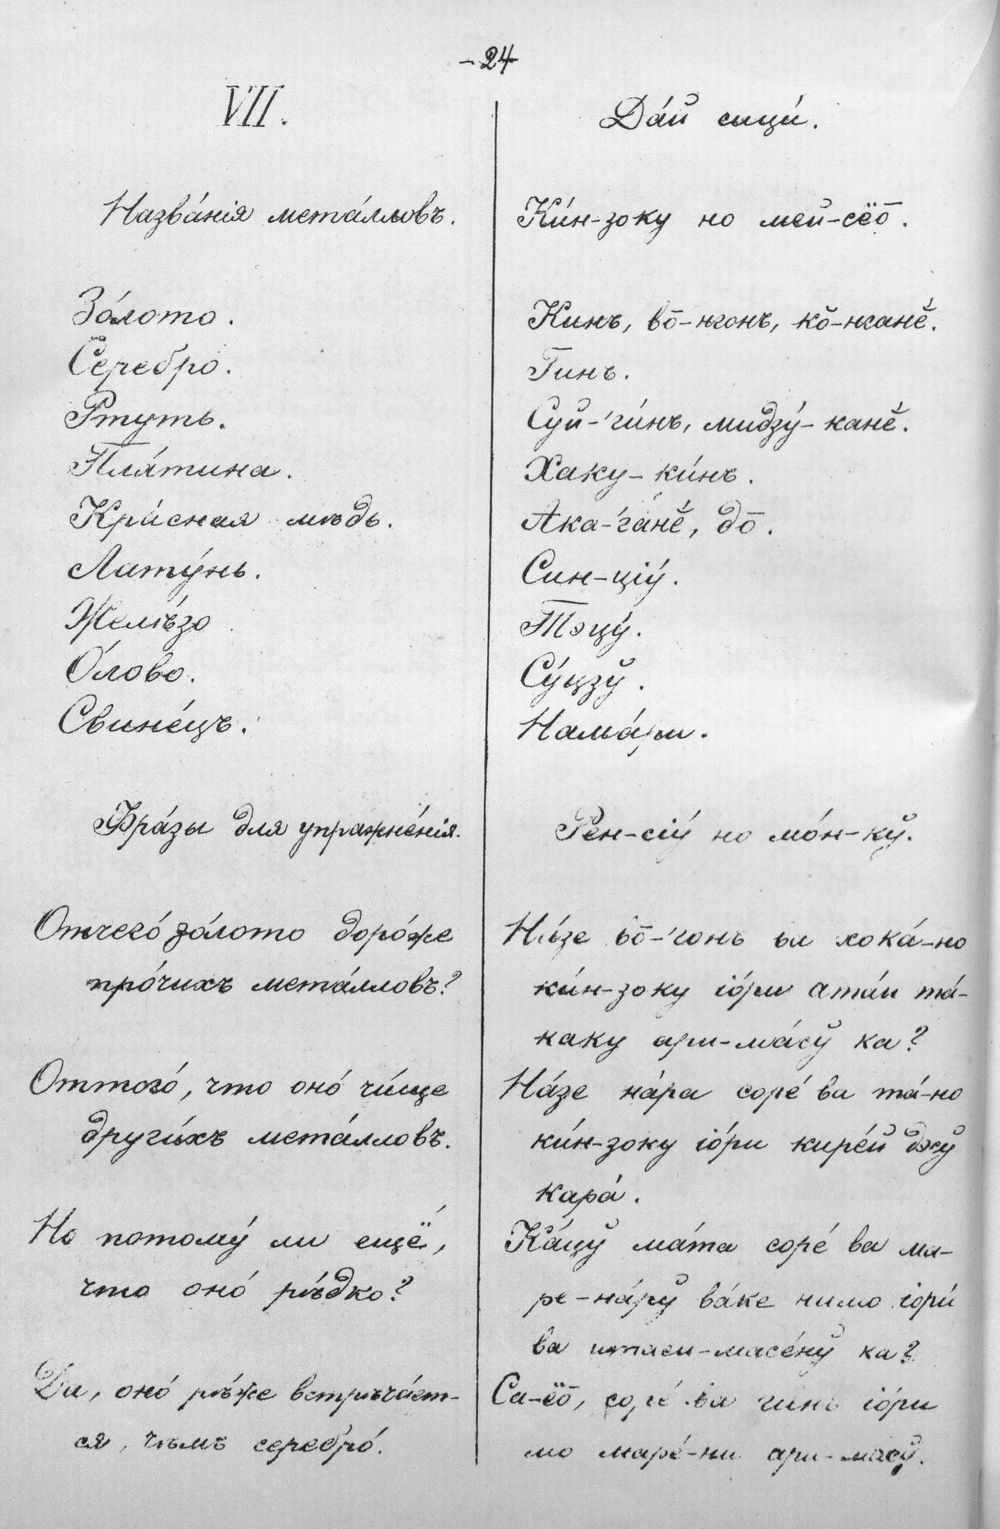 - 24
VII.
Назва́нія мета́лловъ.
Зо́лото.
Серебро.
Ртуть.
Пла́тина.
Кра́сная мѣдь.
Лату́нь.
Желѣ́зо
О́лово.
Свине́цъ.
Фра́зы для упражне́нія.
Отчего́ зо́лото доро́же
про́чихъ мета́лловъ?
Оттого́, что оно́ чи́ще
други́хъ мета́лловъ.
Не потому́ ли ещё,
что оно́ рѣ́дко?
Да, оно́ рѣ́же встрѣча́ет-
ся, чѣмъ серебро́.
Да́й сици́.
Ки́н-зоку но мей-сёо̄.
Кинъ, во̄-нгонъ, ко̄-нганѐ.
Гинъ.
Суй-ги́нъ, мидзу́-канѐ.
Хаку-ки́нъ.
Ака-га́нѐ, до̄.
Син-ціу́.
Тэцу́.
Су́цзӯ.
Нама́ри.
Рен-сіӯ но мо́н-кӯ.
На́зе во̄-гонъ ва хока́-но
ки́н-зоку іо́ри атаи та́-
каку ари-ма́сӯ ка?
На́зе на́ра соре́ ва та́-но
ки́н-зоку іо́ри кире́й дэӯ
кара́.
Ка́цӯ ма́та соре́ ва ма-
ре-на́рӯ ва́ке нимо іори́
ва итаси-масе́нӯ ка?
Са-ёо̄, соре́ ва гинъ іо́ри
мо маре́-ни ари-масӯ.